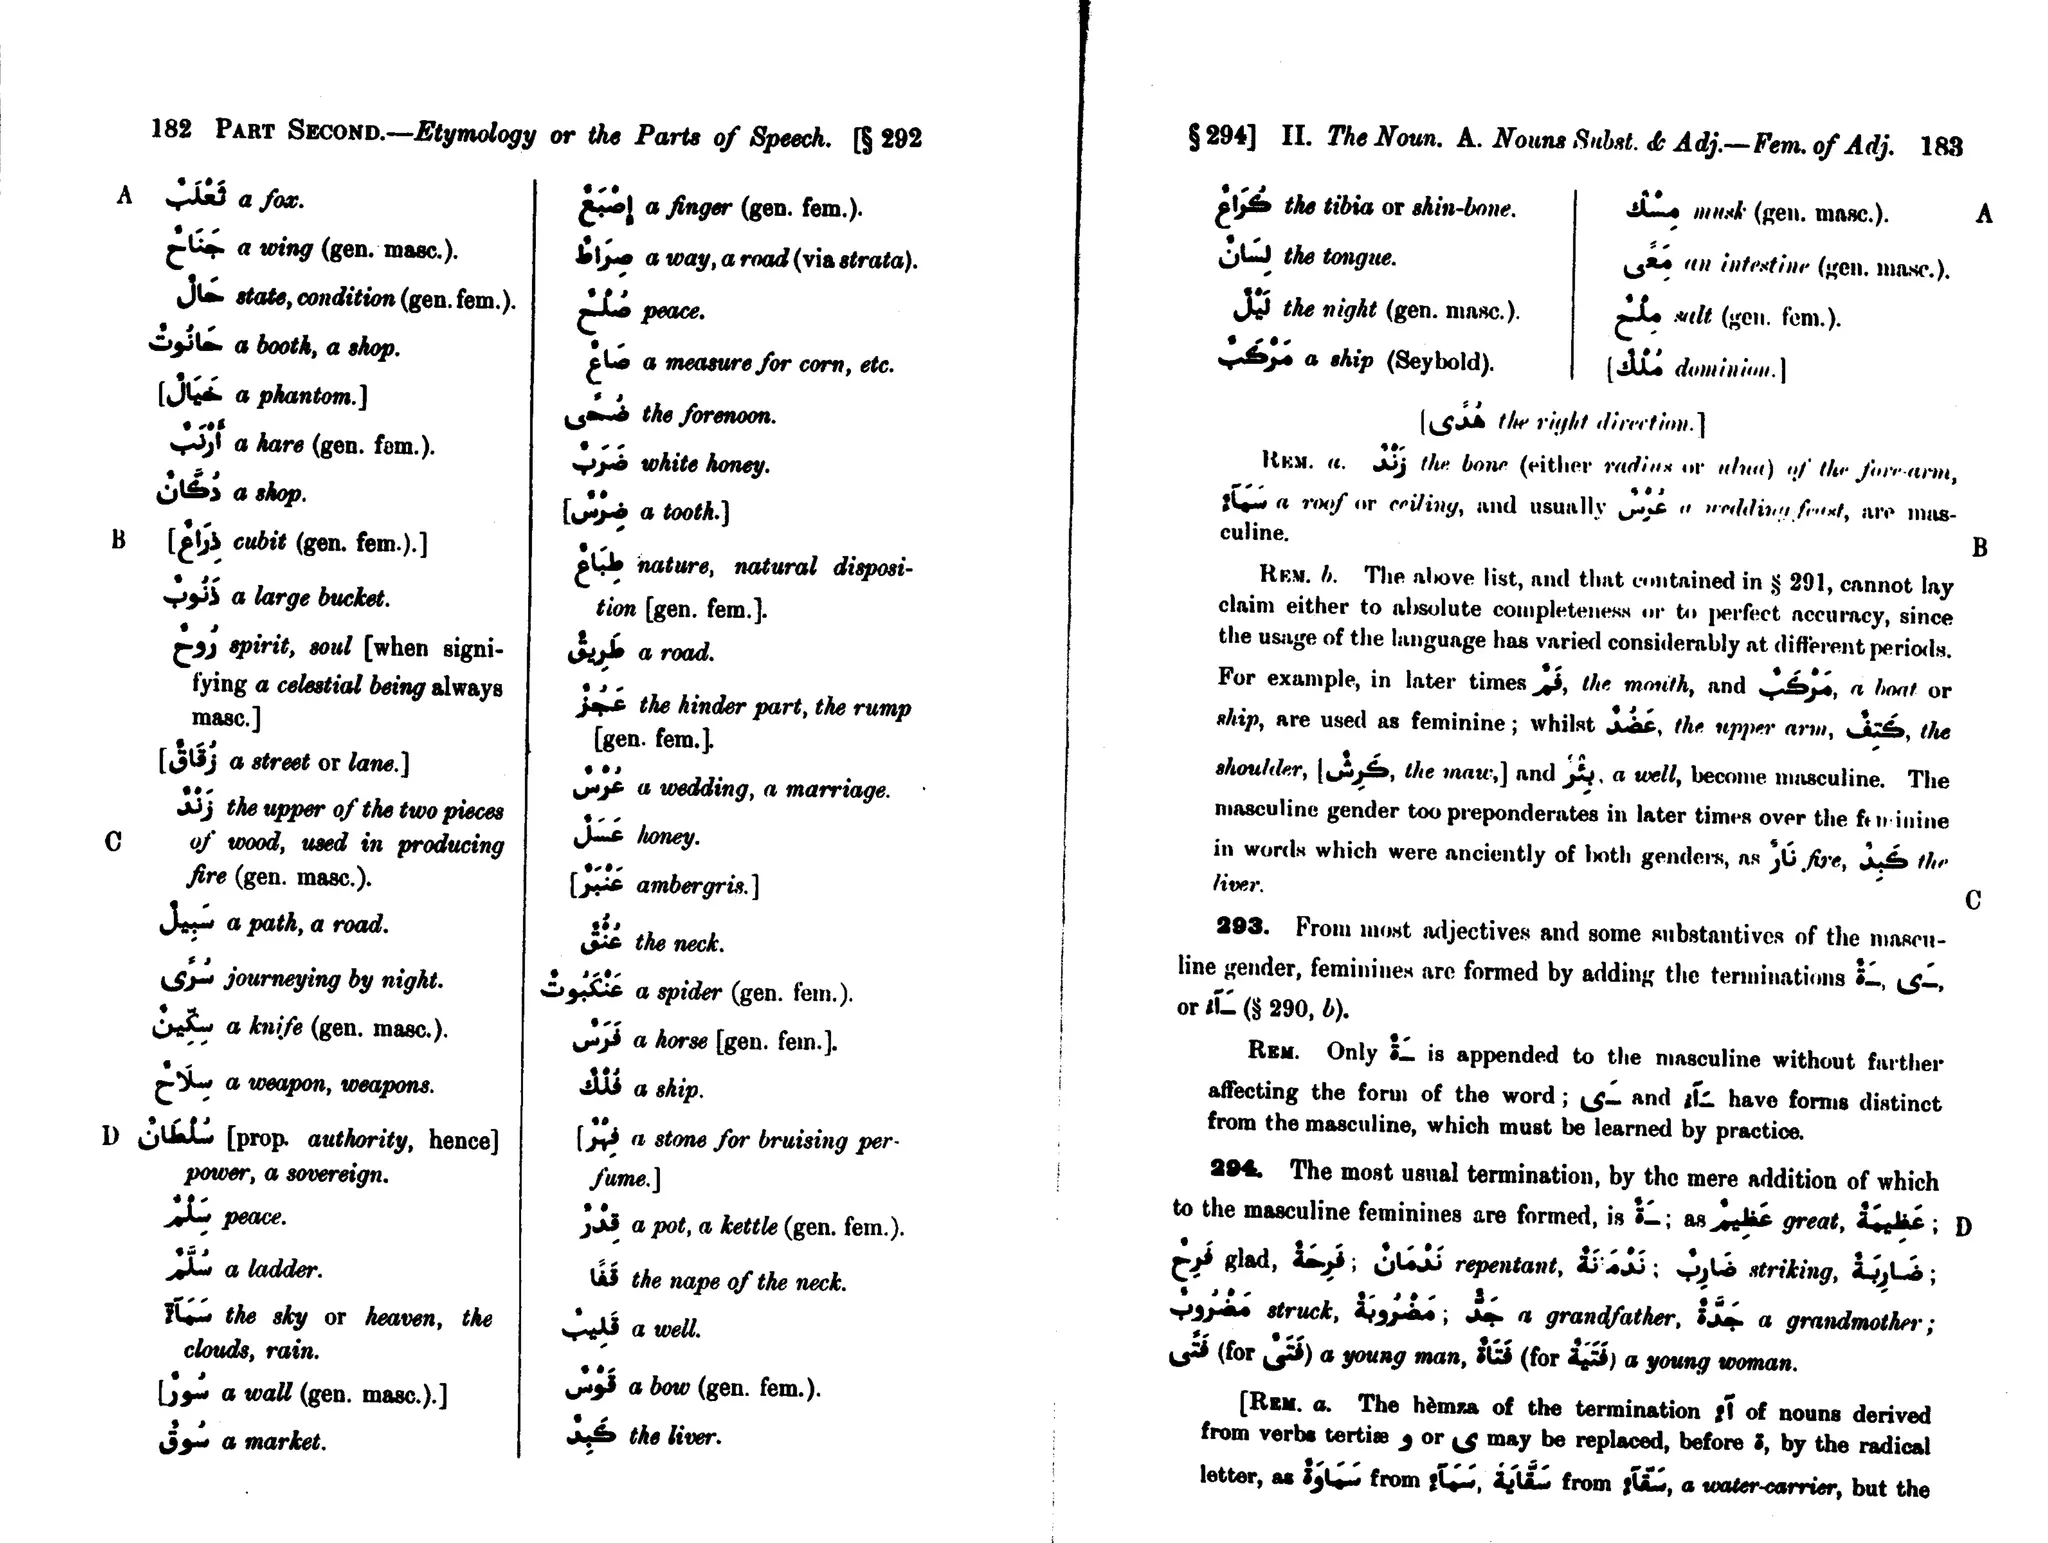 182 PART SECOND.—Etymology or the Parts of Speech. [§ 292
A ثَعْلَبٌ a fox.
جَنَاحٌ a wing (gen. masc.).
حَالٌ state, condition (gen. fem.).
حَانُوتٌ a booth, a shop.
[خَيَالٌ a phantom.]
أَرْنَبٌ a hare (gen. fem.).
دُكَّانٌ a shop.
B [ذِرَاعٌ cubit (gen. fem.).]
ذَنُوبٌ a large bucket.
رُوحٌ spirit, soul [when signi-
fying a celestial being always
masc.]
[زُقَاقٌ a street or lane.]
زَنْدٌ the upper of the two pieces
C of wood, used in producing
fire (gen. masc.).
سَبِيلٌ a path, a road.
سُرًى journeying by night.
سِكِّينٌ a knife (gen. masc.).
سِلَاحٌ a weapon, weapons.
D سُلْطَانٌ [prop. authority, hence]
power, a sovereign.
سَِلْمٌ peace.
سُلَّمٌ a ladder.
سَمَآءٌ the sky or heaven, the
clouds, rain.
[سُورٌ a wall (gen. masc.).]
سُوقٌ a market.
إِصْبَعٌ a finger (gen. fem.).
صِرَاطٌ a way, a road (via strata).
صُلْحٌ peace.
صَاعٌ a measure for corn, etc.
ضُحًى the forenoon.
ضَرَبٌ white honey.
[ضِرْسٌ a tooth.]
طِبَاعٌ nature, natural disposi-
tion [gen. fem.].
طَرِيقٌ a road.
عَجُزٌ the hinder part, the rump
[gen. fem.].
عُرْسٌ a wedding, a marriage.
عَسَلٌ honey.
[عَنْبَرٌ ambergris.]
عُنُقٌ the neck.
عَنْكَبُوتٌ a spider (gen. fem.).
فَرَسٌ a horse [gen. fem.].
فُلْكٌ a ship.
[فِهْرٌ a stone for bruising per-
fume.]
قِدْرٌ a pot, a kettle (gen. fem.).
قَفًا the nape of the neck.
قَلِيبٌ a well.
قَوْسٌ a bow (gen. fem.).
كَبِدٌ the liver.
§ 294] II. The Noun. A. Nouns Subst. & Adj.—Fem. of Adj. 183
كُرَاعٌ the tibia or shin-bone.
لِسَانٌ the tongue.
لَيْلٌ the night (gen. masc.).
مَرْكَبٌ a ship (Seybold).
مِسْكٌ musk (gen. masc.). A
مَِعًى an intestine (gen. masc.).
مِلْحٌ salt (gen. fem.).
[مُلْكٌ dominion.]
[هُدًى the right direction.]
REM. a. زَنْدٌ the bone (either radius or ulna) of the fore-arm,
سَمَآءٌ a roof or ceiling, and usually عُرْسٌ a wedding feast, are mas-
culine. B
REM. b. The above list, and that contained in § 291, cannot lay
claim either to absolute completeness or to perfect accuracy, since
the usage of the language has varied considerably at different periods.
For example, in later times فَمٌ, the mouth, and مَرْكَبٌ, a boat or
ship, are used as feminine; whilst عَضُدٌ, the upper arm, كَتِفٌ, the
shoulder, [كَرِشٌ, the maw,] and بِئْرٌ, a well, become masculine. The
masculine gender too preponderates in later times over the feminine
in words which were anciently of both genders, as نَارٌ fire, كَبِدٌ the
liver. C
293. From most adjectives and some substantives of the mascu-
line gender, feminines are formed by adding the terminations ـَةٌ, ـَى,
or ـَآءُ (§ 290, b).
REM. Only ـَةٌ is appended to the masculine without farther
affecting the form of the word; ـَى and ـَآءُ have forms distinct
from the masculine, which must be learned by practice.
294. The most usual termination, by the mere addition of which
to the masculine feminines are formed, is ـَةٌ; as عَظِيمٌ great, عَظِيمَةٌ; D
فَرِحٌ glad, فَرِحَةٌ; نَدْمَانٌ repentant, نَدْمَانَةٌ; ضَارِبٌ striking, ضَارِبَةٌ;
مَضْرُوبٌ struck, مَضْرُوبَةٌ; جَدٌّ a grandfather, جَدَّةٌ a grandmother;
فَتًى (for فَتَىٌ) a young man, فَتَاةٌ (for فَتَيَةٌ) a young woman.
[REM. a. The hèmza of the termination آءٌ of nouns derived
from verbs tertiæ و or ى may be replaced, before ة, by the radical
letter, as سَمَاوَةٌ from سَمَآءٌ, سَقَّايَةٌ from سَقَّآءٌ, a water-carrier, but the